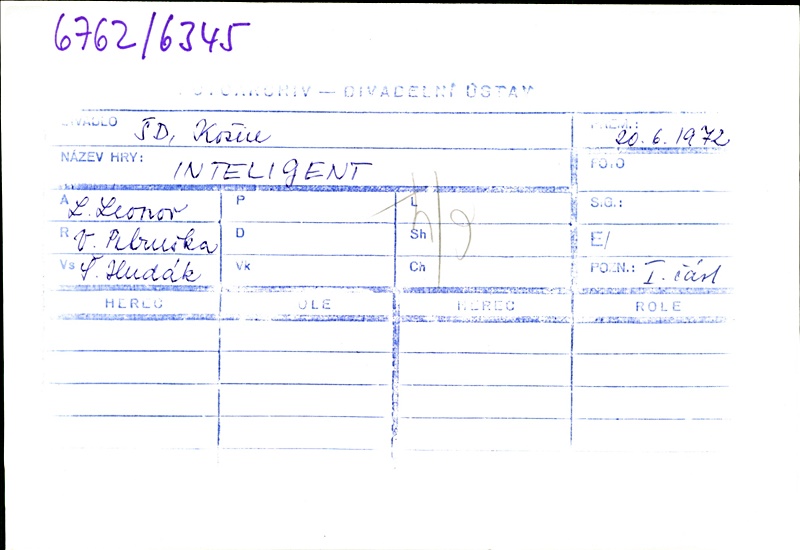 6762/6345
FOTOARCHIV — DIVADELNÍ ÚSTAV
DIVADLO ŠD, Košice PREM.: 20. 6. 1972
NÁZEV HRY: INTELIGENT FOTO
A L. Leonov P L S.G.:
R V. Petruška D Sh E/
Vs Š. Hudák Vk Ch POZN.: I. část
HEREC ROLE HEREC ROLE